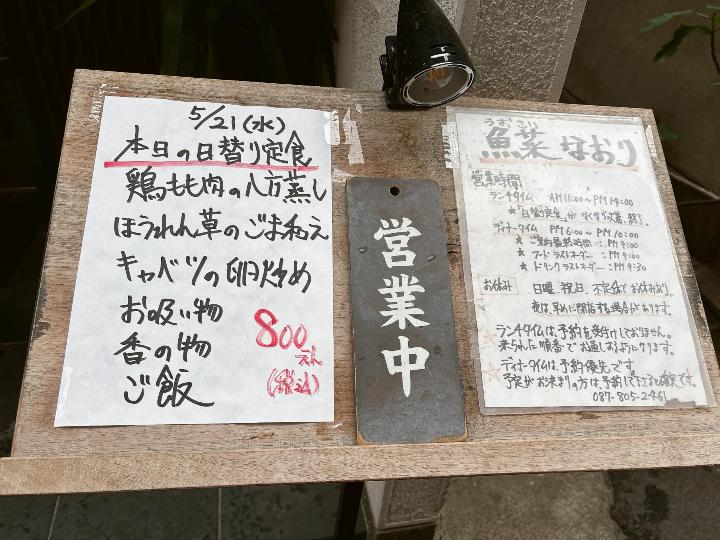 5/21(水)
本日の日替り定食
鶏もも肉の八方蒸し
ほうれん草のごま和え
キャベツの卵炒め
お吸い物
香の物
ご飯
800
えん
(税込)
営業中
うおさい
魚菜 はおり
営業時間
ランチタイム AM11:00~PM14:00
★"日替り定食"が
ディナータイム PM6:00~PM10:00
★ご案内最終時間 :PM9:00
★フードラストオーダー :PM9:00
★ドリンクラストオーダー:PM9:30
お休み 日曜、祝日、不定休でお休みあり。
夜は、早めに閉店する場合があります。
ランチタイムは、予約を受付けしておりません。
来られた順番でお通しするようになります。
ディナータイムは、予約優先です。
予定がお決まりの方は、予約して下さると確実です。
087-805-2461